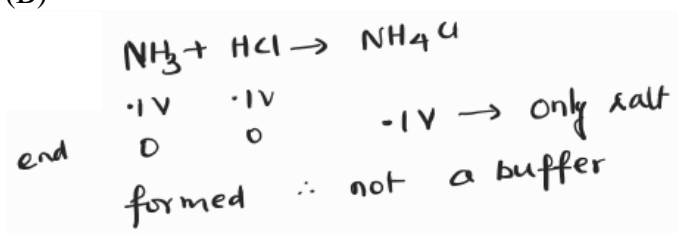 (B)
NH3 + HCl → NH4Cl
·1V ·1V
end 0 0 ·1V → only salt
formed ∴ not a buffer